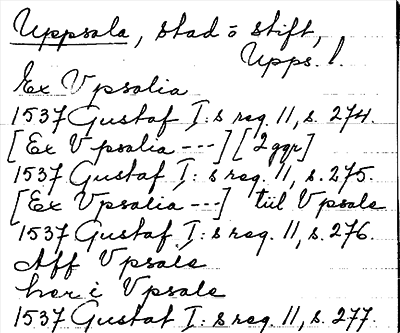 Uppsala, stad o stift,
Upps. l.
Ex Vpsalia
1537 Gustaf I: s reg. 11, s. 274.
[Ex Vpsalia ---] [2 ggr]
1537 Gustaf I: s reg. 11, s. 275.
[Ex Vpsalia ---] tiil Vpsale
1537 Gustaf I: s reg. 11, s. 276.
Aff Vpsale
her i Vpsale
1537 Gustaf I: s reg. 11, s. 277.